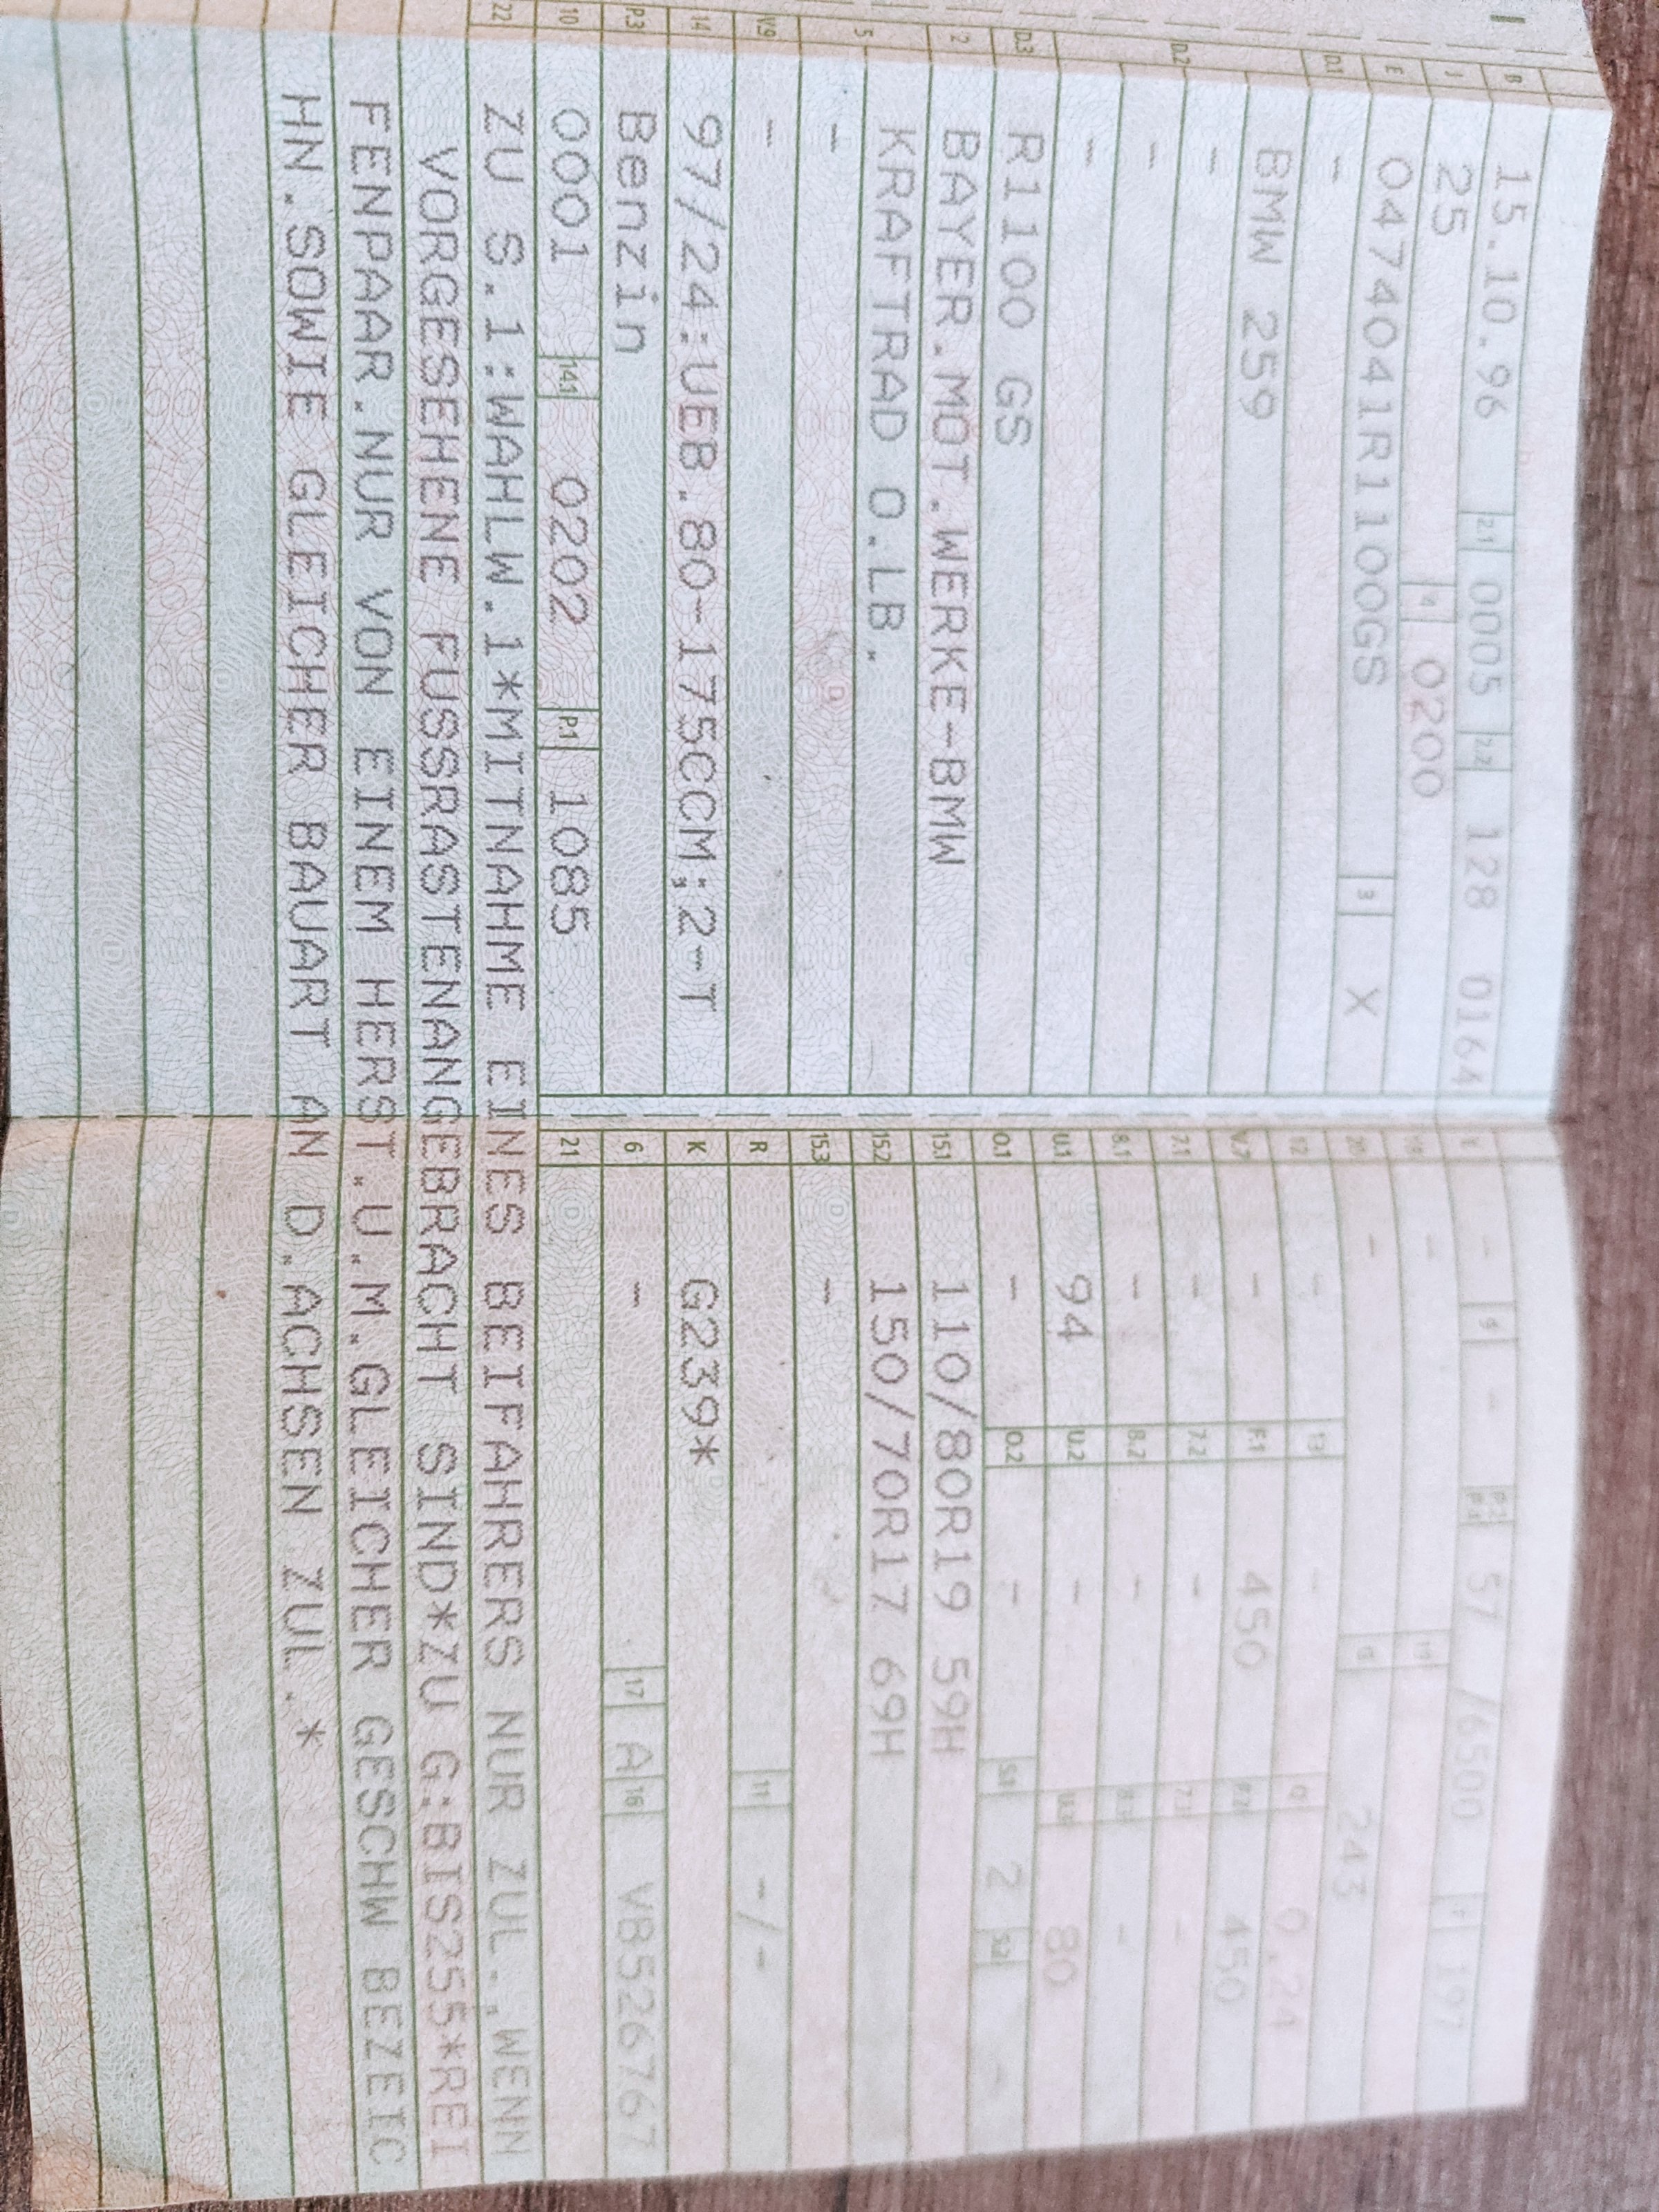 B 15.10.96 2.1 0005 2.2 128 0164
J 25 4 0200
E 0474041R1100GS 3 X
D.1 -
D.2 BMW 259
-
-
-
D.3 R1100 GS
2 BAYER.MOT.WERKE-BMW
5 KRAFTRAD O.LB.
-
V.9 -
14 97/24:UEB.80-175CCM;2-T
P.3 Benzin
10 0001 14.1 0202 P.1 1085
L - 9 - P.2 P.4 57 /6500 T 197
18 - 19
20 - G 243
12 - 13 - Q 0,24
V.7 - F.1 450 F.2 450
7.1 - 7.2 - 7.3 -
8.1 - 8.2 - 8.3 -
U.1 94 U.2 - U.3 80
O.1 - O.2 - S.1 2 S.2 -
15.1 110/80R19 59H
15.2 150/70R17 69H
15.3 -
R 11 -/-
K G239*
6 - 17 A 16 VB526767
21
22 ZU S.1:WAHLW.1*MITNAHME EINES BEIFAHRERS NUR ZUL.,WENN
VORGESEHENE FUSSRASTENANGEBRACHT SIND*ZU G:BIS255*REI
FENPAAR.NUR VON EINEM HERST.U.M.GLEICHER GESCHW BEZEIC
HN.SOWIE GLEICHER BAUART AN D.ACHSEN ZUL.*